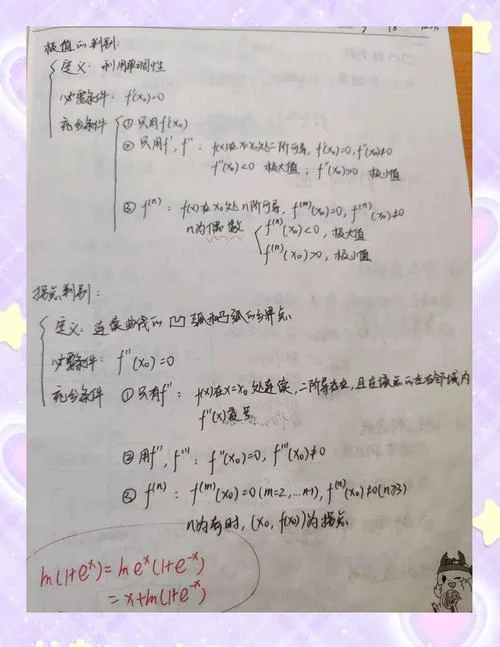 极值的判别:
定义: 利用单调性
必要条件: f'(x₀)=0
充分条件 ①只用f'(x₀)
②只用f', f'': f(x)在x=x₀处二阶可导, f'(x₀)=0, f''(x₀)≠0
f''(x₀)<0 极大值; f''(x₀)>0 极小值
③ f⁽ⁿ⁾: f(x)在x₀处n阶可导, f⁽ᵐ⁾(x₀)=0, f⁽ⁿ⁾(x₀)≠0
n为偶数 f⁽ⁿ⁾(x₀)<0, 极大值
f⁽ⁿ⁾(x₀)>0, 极小值
拐点判别:
定义: 连续曲线的凹弧和凸弧的分界点
必要条件: f''(x₀)=0
充分条件 ①只有f'': f(x)在x=x₀处连续, 二阶导存在, 且在该点的左右邻域内
f''(x)变号
②用f'', f''': f''(x₀)=0, f'''(x₀)≠0
③ f⁽ⁿ⁾: f⁽ᵐ⁾(x₀)=0(m=2,...n-1), f⁽ⁿ⁾(x₀)≠0(n≥3)
n为奇时, (x₀, f(x₀))为拐点
ln(1+eˣ)=ln eˣ(1+e⁻ˣ)
=x+ln(1+e⁻ˣ)